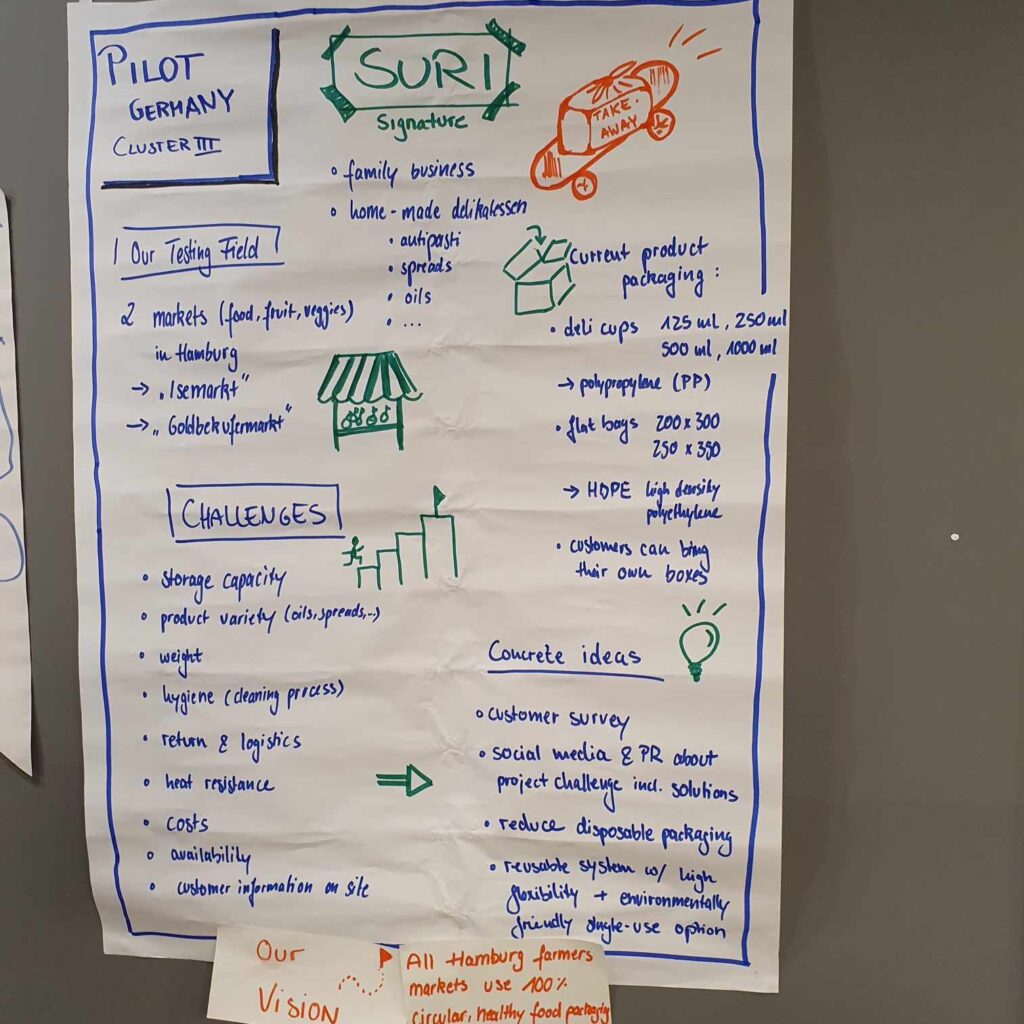 PILOT
GERMANY
CLUSTER III
SURI
Signature
• family business
• home-made delikatessen
• antipasti
• spreads
• oils
• ...
TAKE-
AWAY
Our Testing Field
2 markets (food, fruit, veggies)
in Hamburg
→ „Isemarkt“
→ „Goldbekufermarkt“
Current product
packaging:
• deli cups 125 ml, 250 ml
500 ml, 1000 ml
→ polypropylene (PP)
• flat bags 200 x 300
250 x 350
→ HDPE high density
polyethylene
• customers can bring
their own boxes
CHALLENGES
• storage capacity
• product variety (oils, spreads,...)
• weight
• hygiene (cleaning process)
• return & logistics
• heat resistance
• costs
• availability
• customer information on site
Concrete ideas
• customer survey
• social media & PR about
project challenge incl. solutions
• reduce disposable packaging
• reusable system w/ high
flexibility + environmentally
friendly single-use option
Our
Vision
All Hamburg farmers
markets use 100%
circular, healthy food packaging